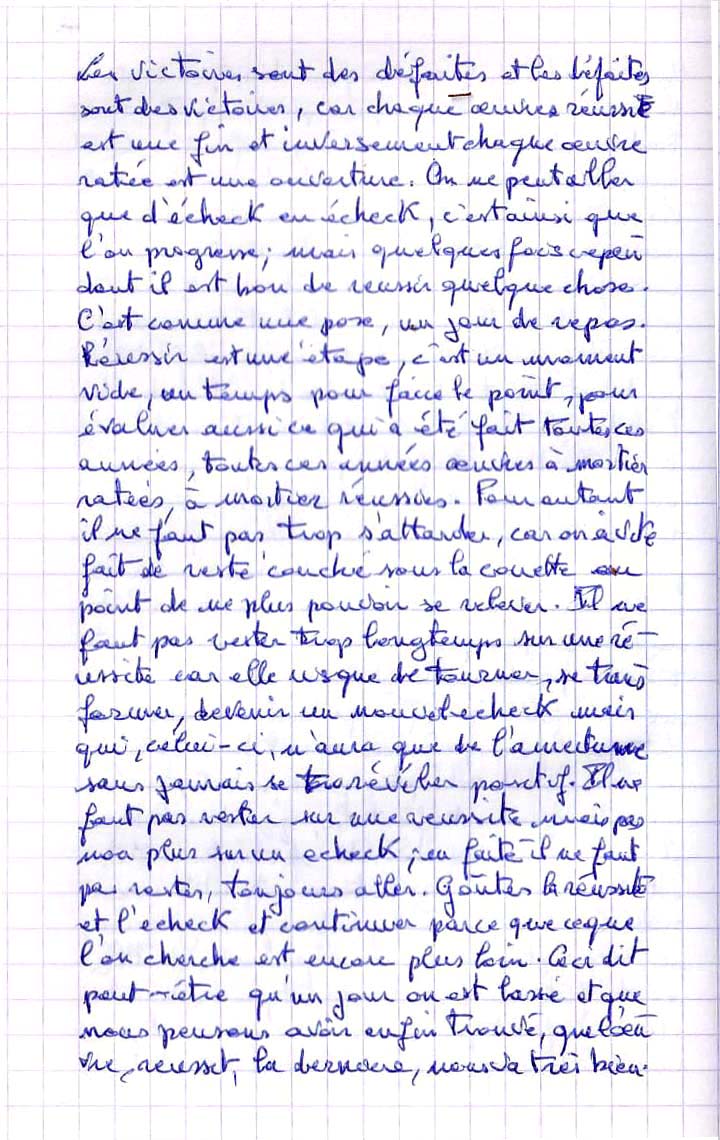 Les victoires sont des défaites et les défaites
sont des victoires, car chaque œuvres réussie
est une fin et inversement chaque œuvre
ratiée est une ouverture. On ne peut aller
que d'écheck en écheck, c'est ainsi que
l'on progresse; mais quelques fois cepen
dant il est bon de reussir quelque chose.
C'est comme une pose, un jour de repos.
Réeussir est une étape, c'est un moment
vide, un temps pour faire le point, pour
évaluer aussi ce qui a été fait toutes ces
années, toutes ces années œuvres à moitier
ratées, à moitier réussies. Pour autant
il ne faut pas trop s'attarder, car on a vite
fait de resté couché sous la couette au
point de ne plus pouvoir se relever. Il ne
faut pas rester trop longtemps sur une ré-
ussite car elle risque de tourner, se trans
former, devenir un nouvel echeck mais
qui, celui-ci, n'aura que de l'amertume
sans jamais se révéler positif. Il ne
faut pas rester sur une reussite mais pas
non plus sur un echeck; en faite il ne faut
pas rester, toujours aller. Goûter la réussite
et l'echeck et continuer parce que ce que
l'on cherche est encore plus loin. Ceci dit
peut-être qu'un jour on est lassé et que
nous pensons avoir enfin trouvé, que l'œu
vre, reussit, la derniere, nous va très bien.